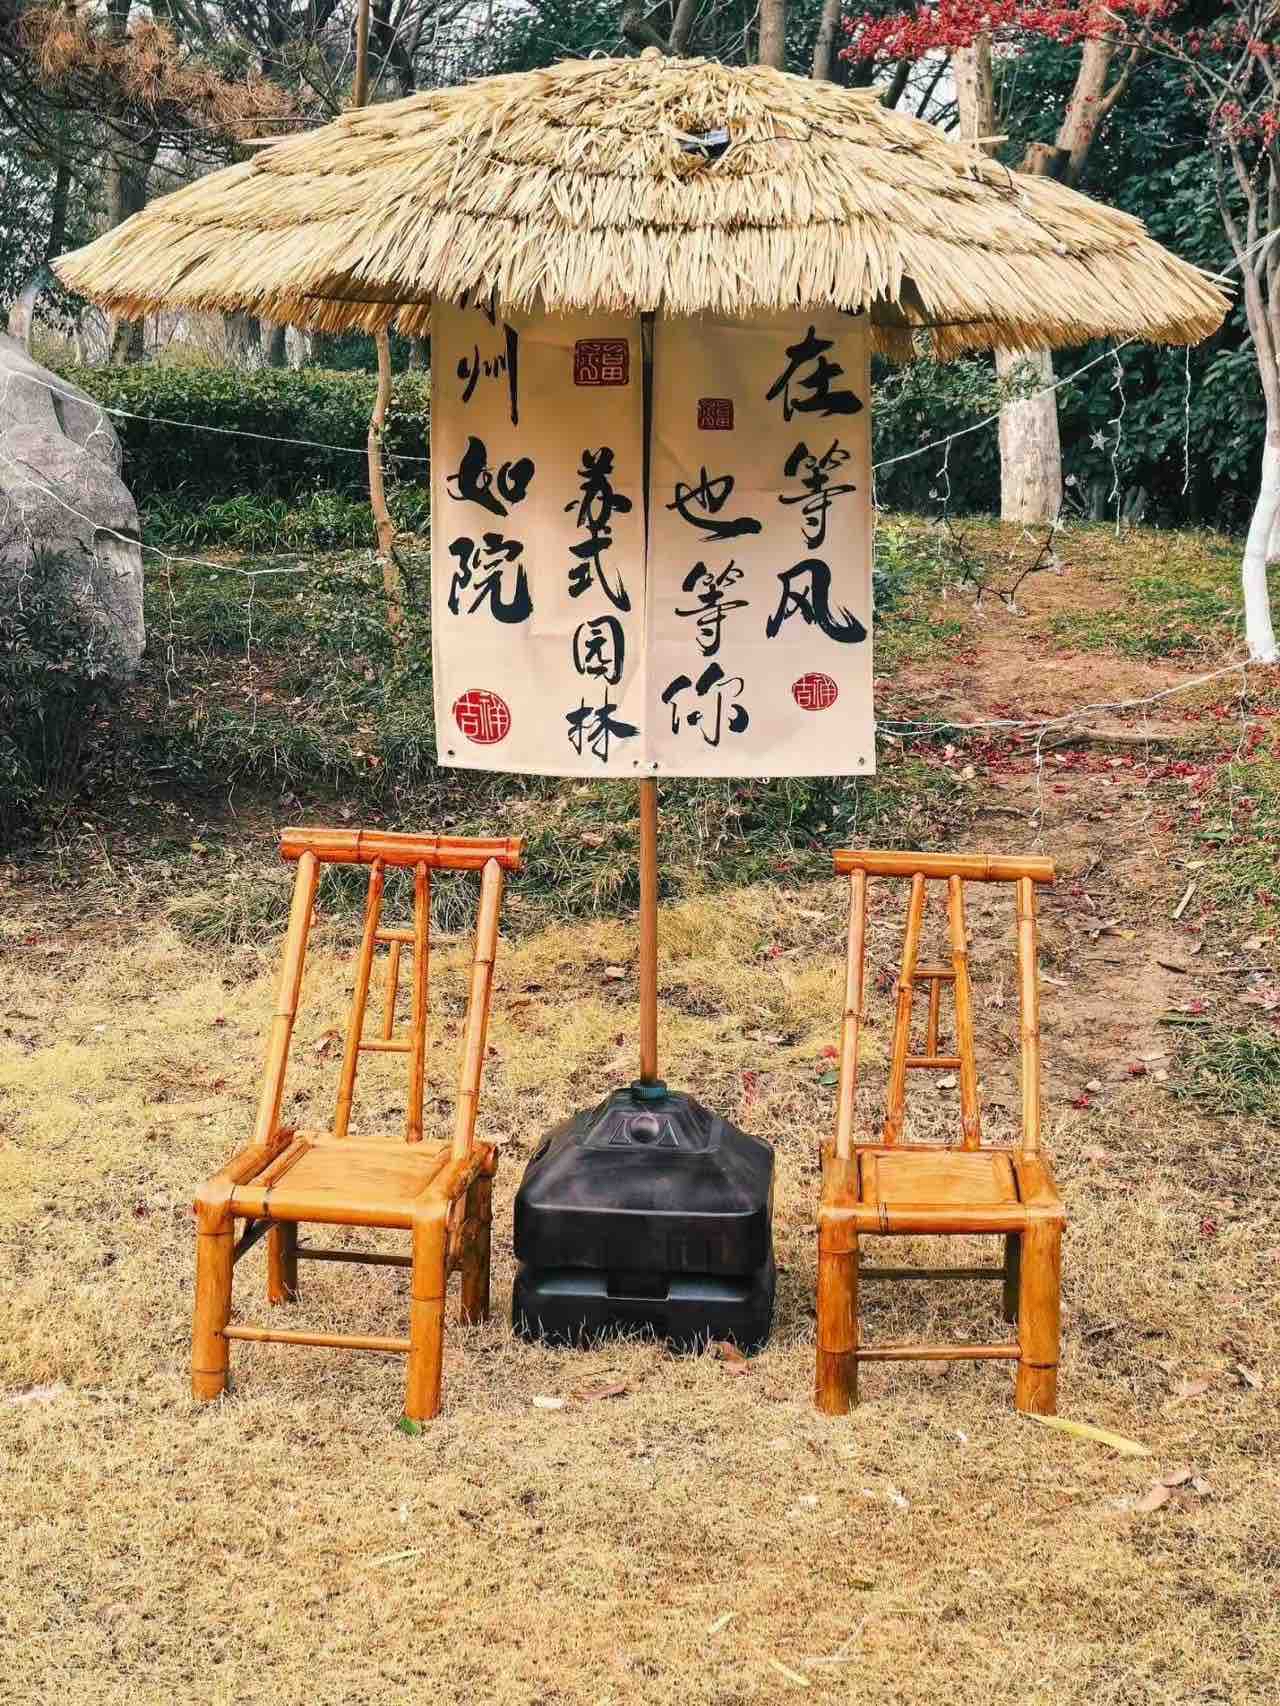 在等风
吉祥
福
也等你
福
苏式园林
州如院
吉祥